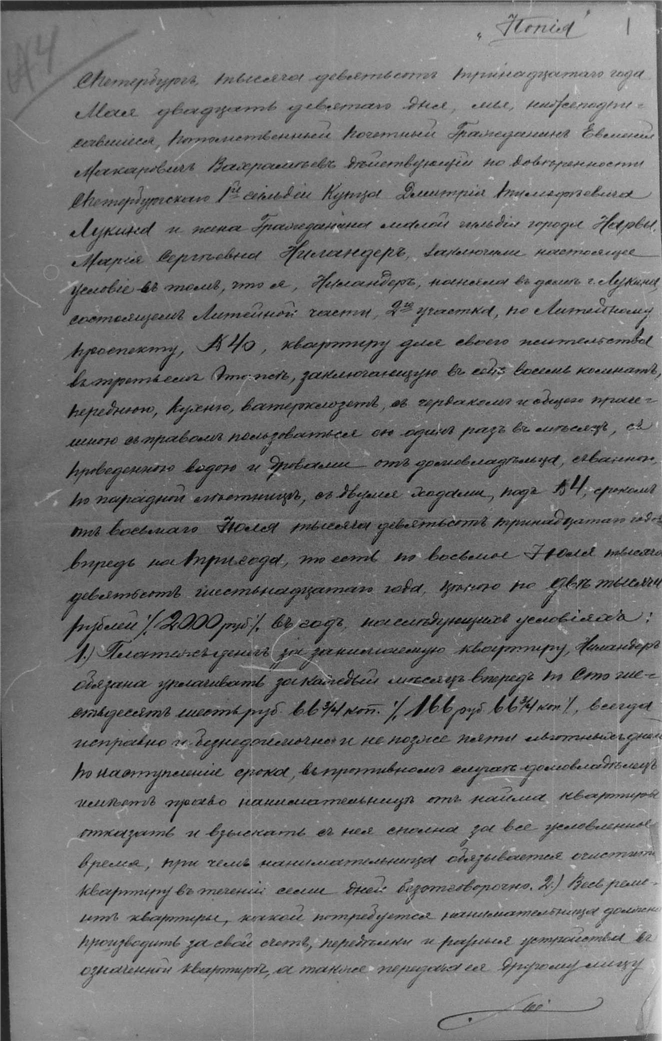 „Копія“ 1
А4
С.Петербургъ, тысяча девятьсотъ тринадцатаго года
Мая двадцать девятаго дня, мы, нижеподпи-
савшіеся, Потомственный Почетный Гражданинъ Евгеній
Макаровичъ Вахрамѣевъ дѣйствующій по довѣренности
С.Петербургскаго 1й гильдіи Купца Дмитрія
Лукина и жена Гражданина малой гильдіи города Нарвы
Марія Сергѣевна Ниландеръ, заключили настоящее
условіе въ томъ, что я, Ниландеръ, наняла въ домѣ г. Лукина
состоящемъ Литейной части, 2го участка, по Литейному
проспекту, №40, квартиру для своего жительства
въ третьемъ этажѣ, заключающую въ себѣ восемь комнатъ,
переднюю, кухню, ватерклозетъ, съ чердакомъ и общею праче-
шною съ правомъ пользоваться ею одинъ разъ въ мѣсяцъ, съ
проведенною водою и дровами отъ домовладѣльца, съ ванною,
по парадной лѣстницѣ, съ двумя ходами, подъ №4, срокомъ
отъ восьмаго Іюля тысяча девятьсотъ тринадцатаго года
впредь на три года, то есть по восьмое Іюля тысяча
девятьсотъ шестнадцатаго года, цѣною по двѣ тысячи
рублей /2000 руб/. въ годъ, на слѣдующихъ условіяхъ:
1.) Платежъ денегъ за занимаемую квартиру, Ниландеръ
обязана уплачивать за каждый мѣсяцъ впередъ по сто ше-
стьдесятъ шесть руб. 66¾ коп. /166 руб 66¾ коп/. всегда
исправно и бездоимочно и не позже пяти льготныхъ дней
по наступленіе срока, въ противномъ случаѣ домовладѣлецъ
имѣетъ право нанимательницѣ отъ найма квартиры
отказать и взыскать съ нея сполна за все условленное
время, при чемъ нанимательница обязывается очистить
квартиру въ теченіи семи дней безотговорочно. 2.) Весь ремо-
нтъ квартиры, какой потребуется нанимательница должна
производить за свой счетъ, передѣлки и разныя устройства въ
означенной квартирѣ, а также передача ея другому лицу